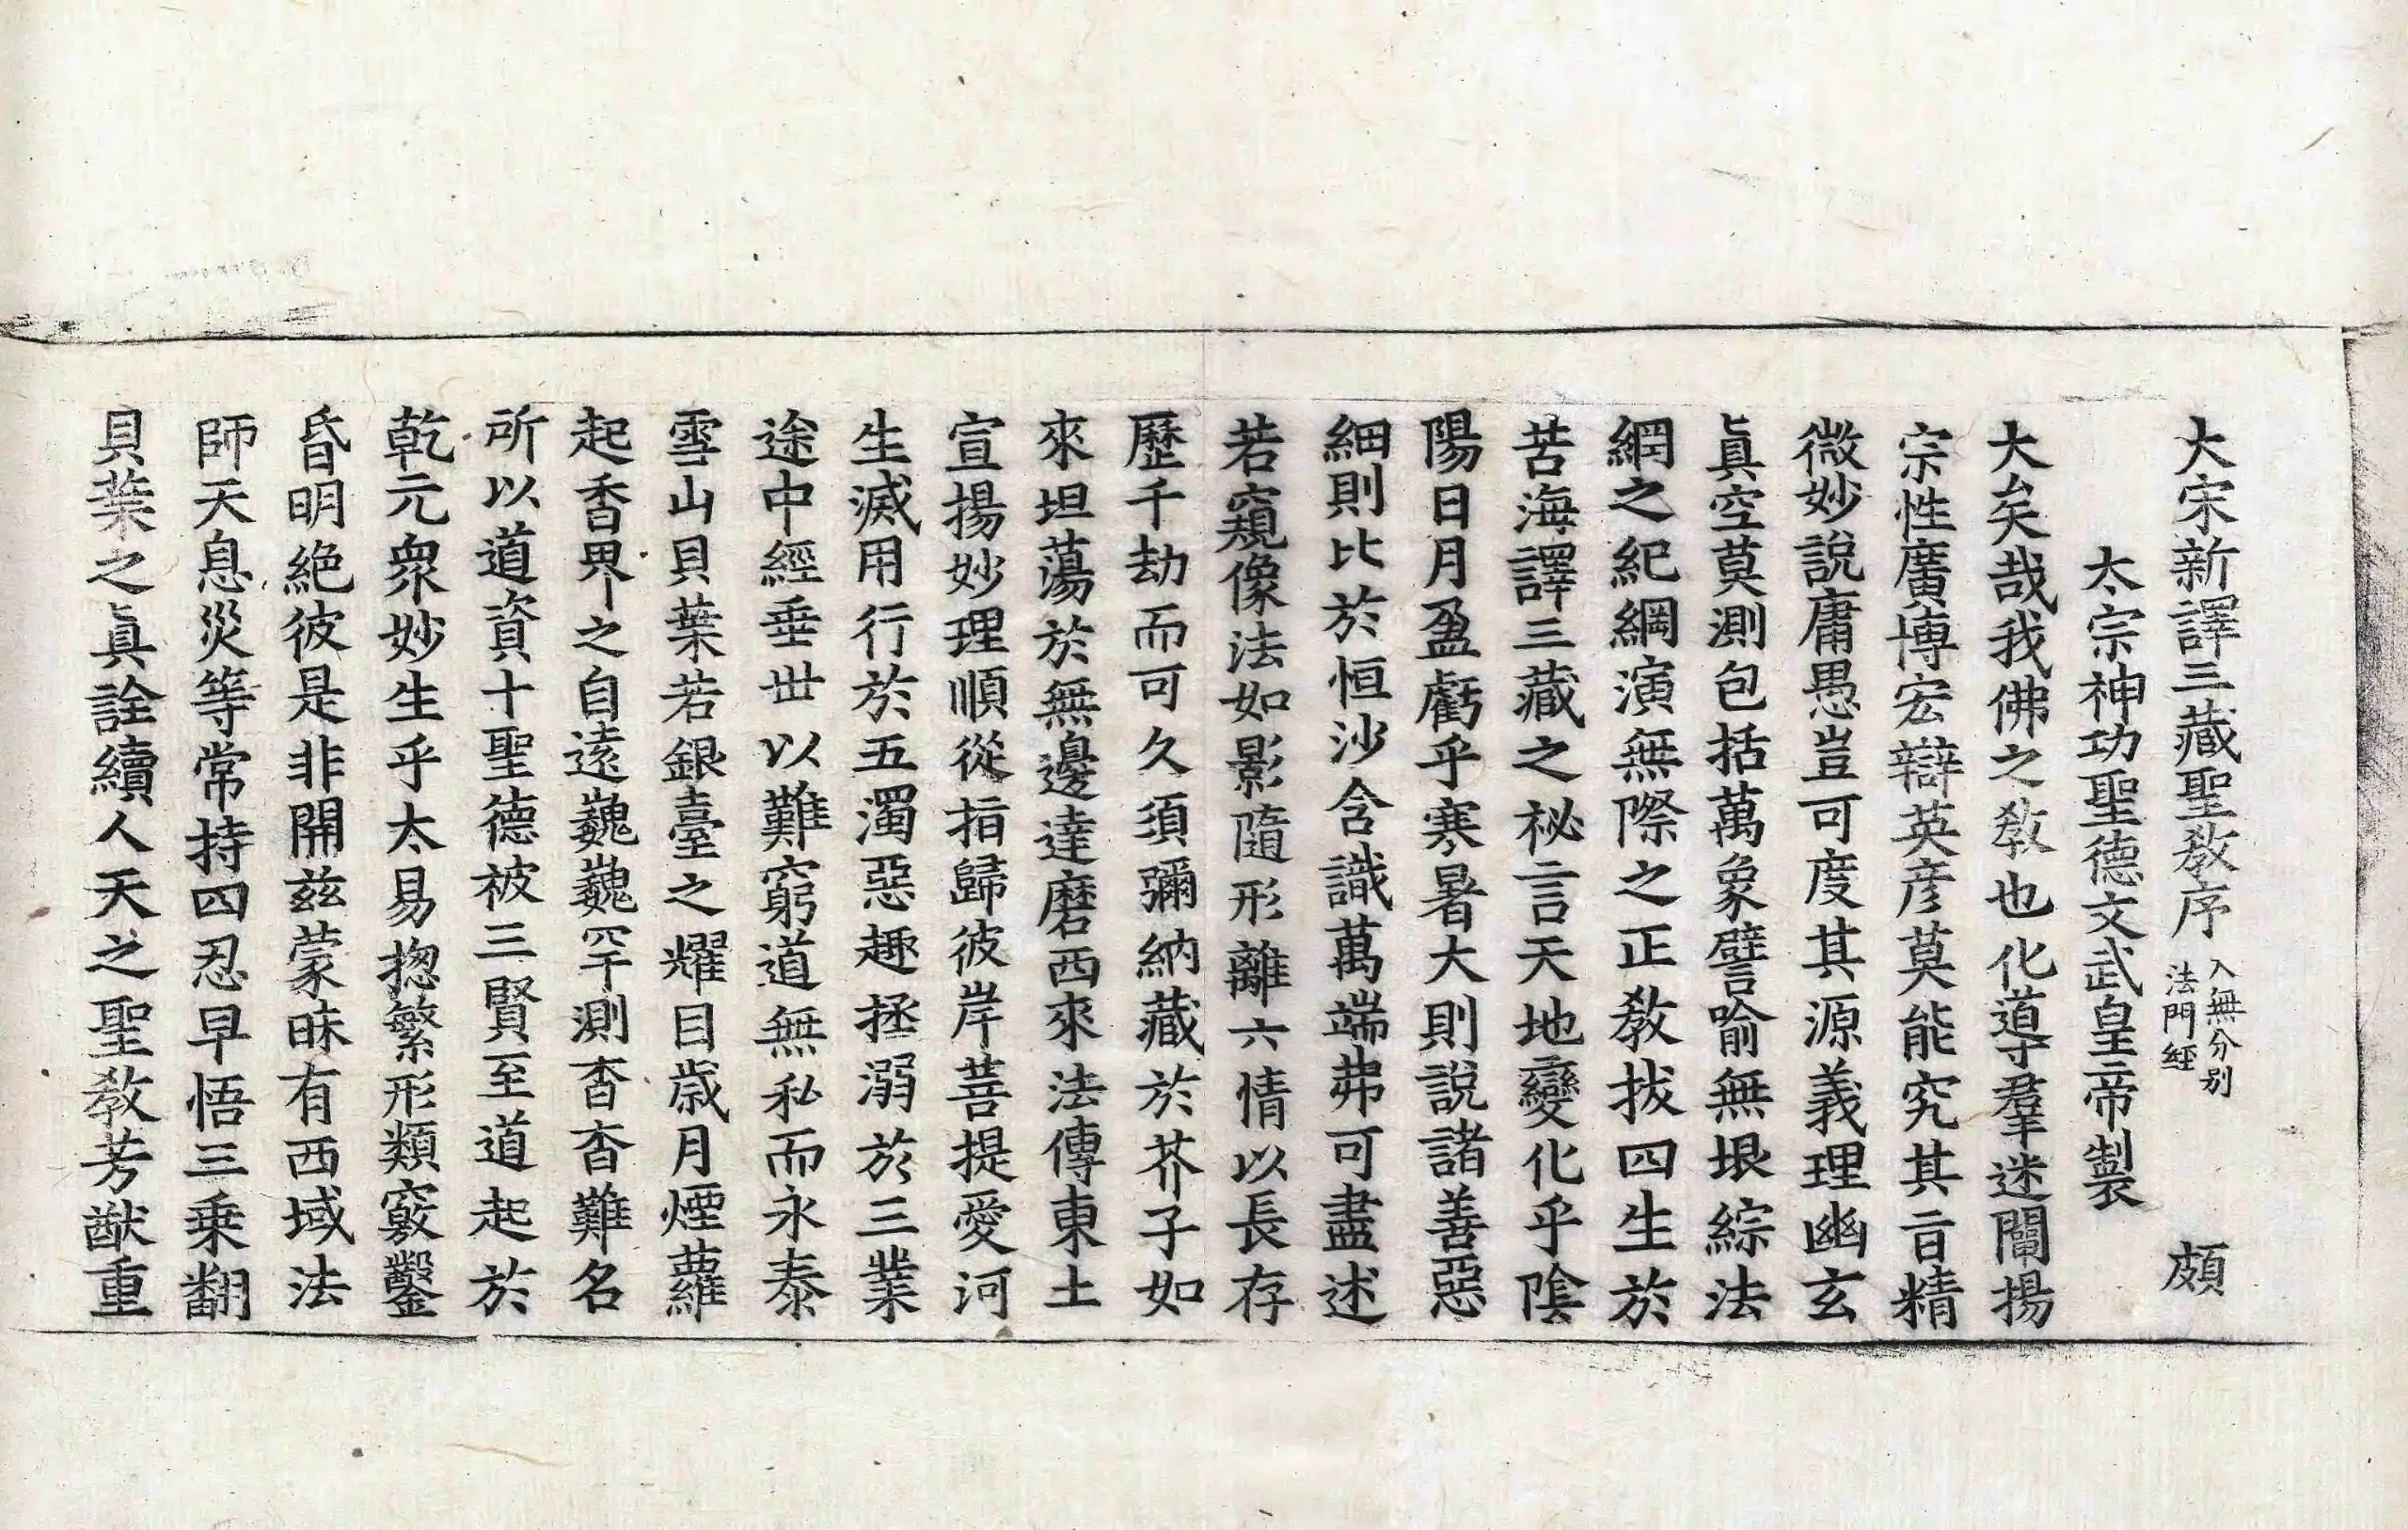 大宋新譯三藏聖敎序 入無分别法門經 頗
太宗神功聖德文武皇帝製
大矣哉我佛之敎也化導羣迷闡揚
宗性廣博宏辯英彦莫能究其旨精
微妙說庸愚豈可度其源義理幽玄
眞空莫測包括萬象譬喻無垠綜法
網之紀綱演無際之正敎拔四生於
苦海譯三藏之祕言天地變化乎陰
陽日月盈虧乎寒暑大則說諸善惡
細則比於恒沙含識萬端弗可盡述
若窺像法如影隨形離六情以長存
歷千劫而可久須彌納藏於芥子如
來坦蕩於無邊達磨西來法傳東土
宣揚妙理順從指歸彼岸菩提愛河
生滅用行於五濁惡趣拯溺於三業
途中經垂世以難窮道無私而永泰
雪山貝葉若銀臺之耀目歲月煙蘿
起香界之自遠巍巍罕測杳杳難名
所以道資十聖德被三賢至道起於
乾元衆妙生乎太易揔繁形類竅鑿
昏明絶彼是非開兹蒙昧有西域法
師天息災等常持四忍早悟三乗翻
貝葉之眞詮續人天之聖敎芳猷重